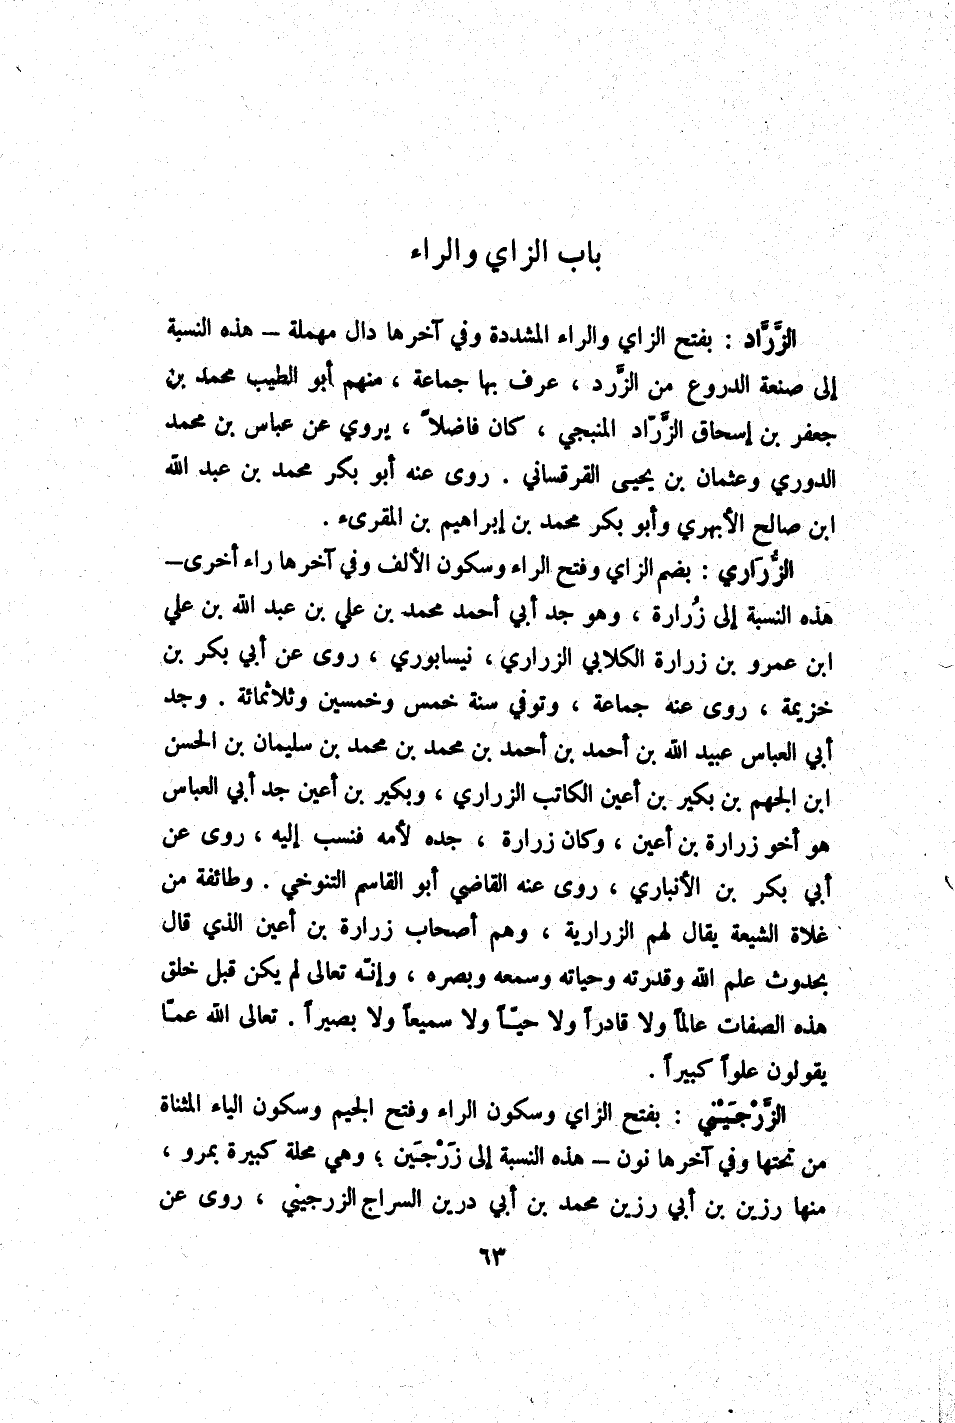 باب الزاي والراء
الزَّرَّاد : بفتح الزاي والراء المشددة وفي آخرها دال مهملة – هذه النسبة
إلى صنعة الدروع من الزَّرد ، عرف بها جماعة ، منهم أبو الطيب محمد بن
جعفر بن إسحاق الزَّرّاد المنبجي ، كان فاضلاً ، يروي عن عباس بن محمد
الدوري وعثمان بن يحيـى القرقساني . روى عنه أبو بكر محمد بن عبد الله
ابن صالح الأبهري وأبو بكر محمد بن إبراهيم بن المقرىء .
الزُّرَاري : بضم الزاي وفتح الراء وسكون الألف وفي آخرها راء أخرى–
هذه النسبة إلى زُرارة ، وهو جد أبي أحمد محمد بن علي بن عبد الله بن علي
ابن عمرو بن زرارة الكلابي الزراري ، نيسابوري ، روى عن أبي بكر بن
خزيمة ، روى عنه جماعة ، وتوفي سنة خمس وخمسين وثلاثمائة . وجد
أبي العباس عبيد الله بن أحمد بن أحمد بن محمد بن محمد بن سليمان بن الحسن
ابن الجهم بن بكير بن أعين الكاتب الزراري ، وبكير بن أعين جد أبي العباس
هو أخو زرارة بن أعين ، وكان زرارة ، جده لأمه فنسب إليه ، روى عن
أبي بكر بن الأنباري ، روى عنه القاضي أبو القاسم التنوخي . وطائفة من
غلاة الشيعة يقال لهم الزرارية ، وهم أصحاب زرارة بن أعين الذي قال
بحدوث علم الله وقدرته وحياته وسمعه وبصره ، وإنّه تعالى لم يكن قبل خلق
هذه الصفات عالماً ولا قادراً ولا حيّـاً ولا سميعاً ولا بصيراً . تعالى الله عمـّا
يقولون علواً كبيراً .
الزَّرْجَيْني : بفتح الزاي وسكون الراء وفتح الجيم وسكون الياء المثناة
من تحتها وفي آخرها نون – هذه النسبة إلى زَرْجَين ؛ وهي محلة كبيرة بمرو ،
منها رزين بن أبي رزين محمد بن أبي درين السراج الزرجيني ، روى عن
٦٣